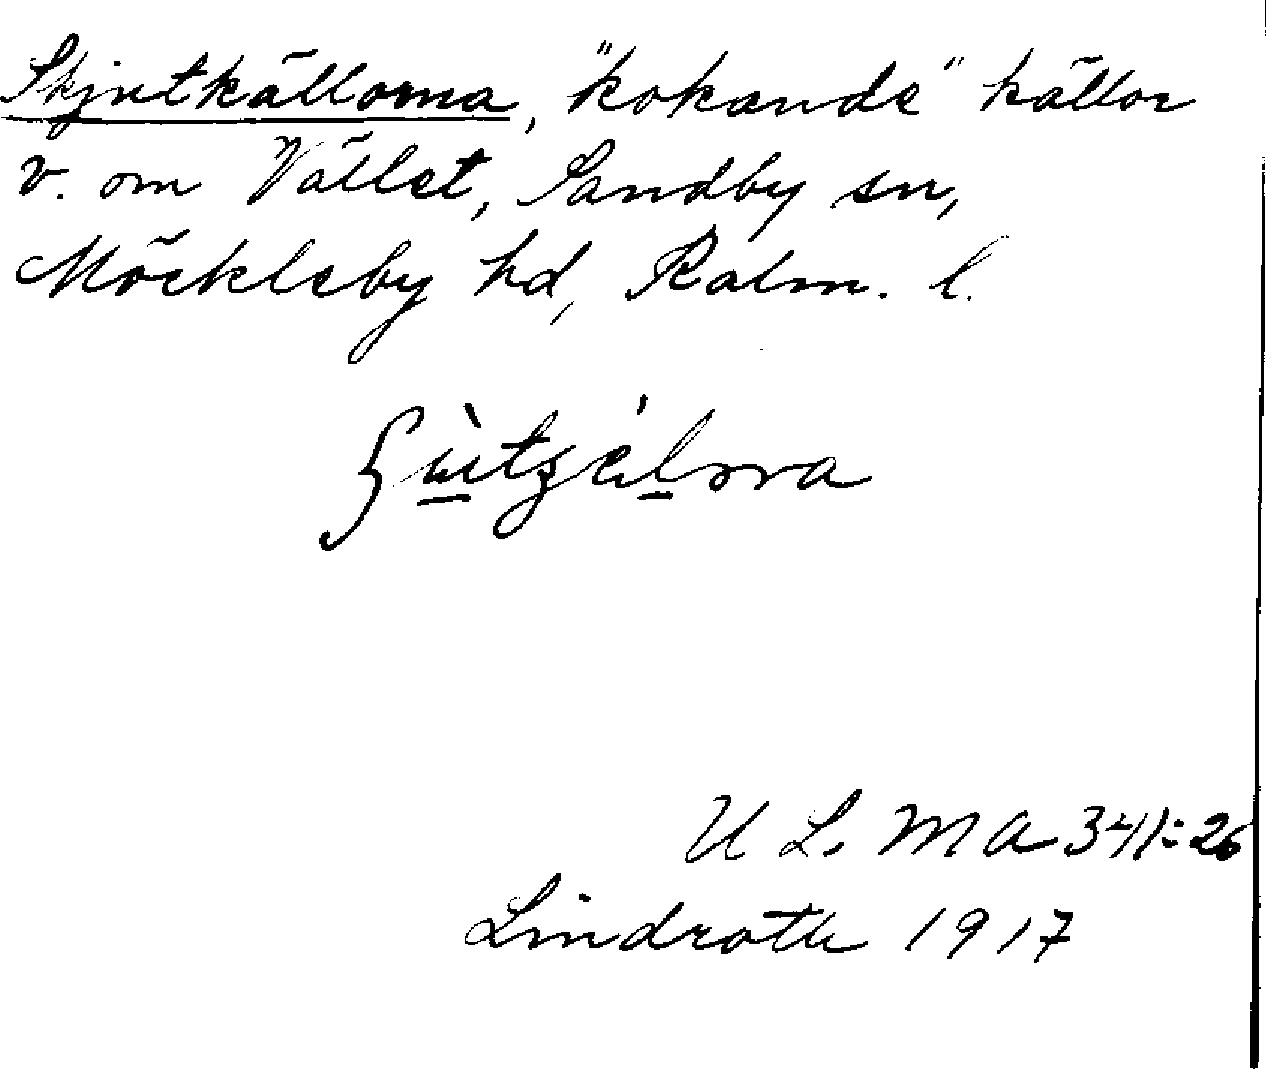 Skjutkällorna, "kokande" källor
v. om Vället, Sandby sn,
Möckleby hd, Kalm. l.
U L. M A 341:26
Lindroth 1917